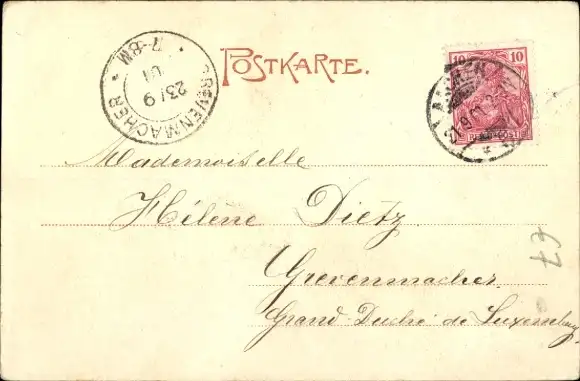 POSTKARTE.
GREVENMACHER
23/9
01
7-8M
10 10
Mademoiselle
Hélène Dietz
Grevenmacher
Grand-Duché de Luxembug.